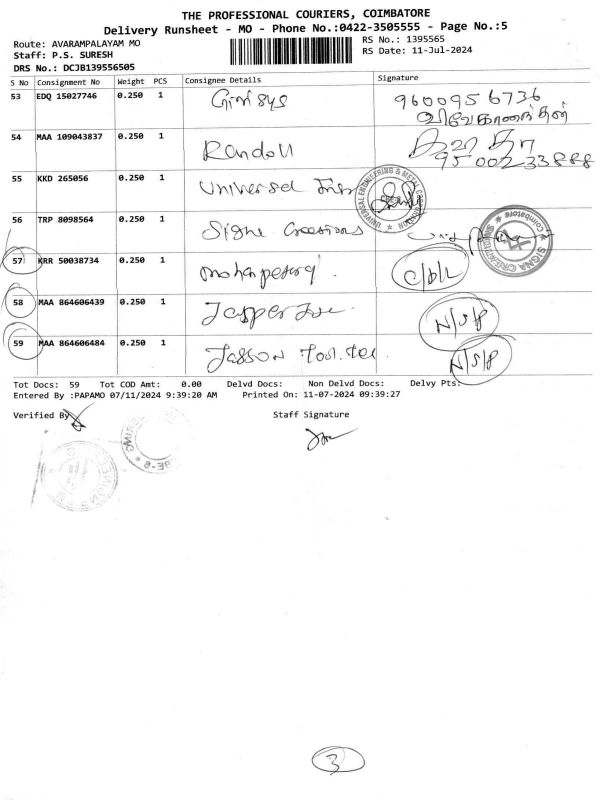 THE PROFESSIONAL COURIERS, COIMBATORE
Delivery Runsheet - MO - Phone No.:0422-3505555 - Page No.:5
Route: AVARAMPALAYAM MO RS No.: 1395565
Staff: P.S. SURESH RS Date: 11-Jul-2024
DRS No.: DCJB139556505
S No Consignment No Weight PCS Consignee Details Signature
53 EDQ 15027746 0.250 1 9600956736
விவேகானந்தன்
54 MAA 109043837 0.250 1 Randoll
9500233888
55 KKD 265056 0.250 1 Universal UNIVERSAL ENGINEERING & METAL CORPORATION
56 TRP 8098564 0.250 1 Signa Creations SIGNA CREATIONS Coimbatore
57 KRR 50038734 0.250 1 C/D/L
58 MAA 864606439 0.250 1 Jasper N/S/P
59 MAA 864606484 0.250 1 Jasson Tool N/S/P
Tot Docs: 59 Tot COD Amt: 0.00 Delvd Docs: Non Delvd Docs: Delvy Pts:
Entered By :PAPAMO 07/11/2024 9:39:20 AM Printed On: 11-07-2024 09:39:27
Verified By Staff Signature
3